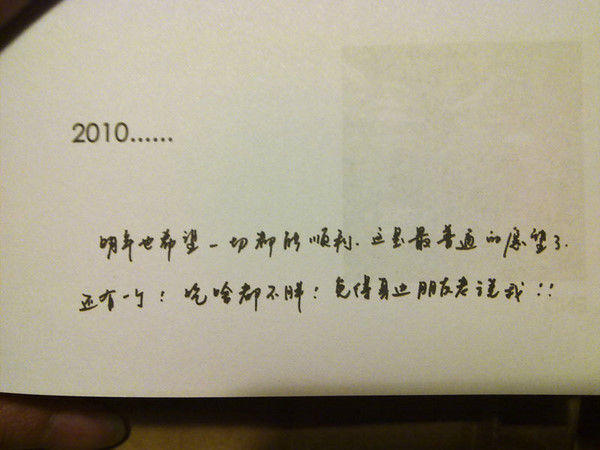 2010......
明年也希望一切都能顺利.这是最普通的愿望了.
还有一个!吃啥都不胖!免得身边朋友老说我!!